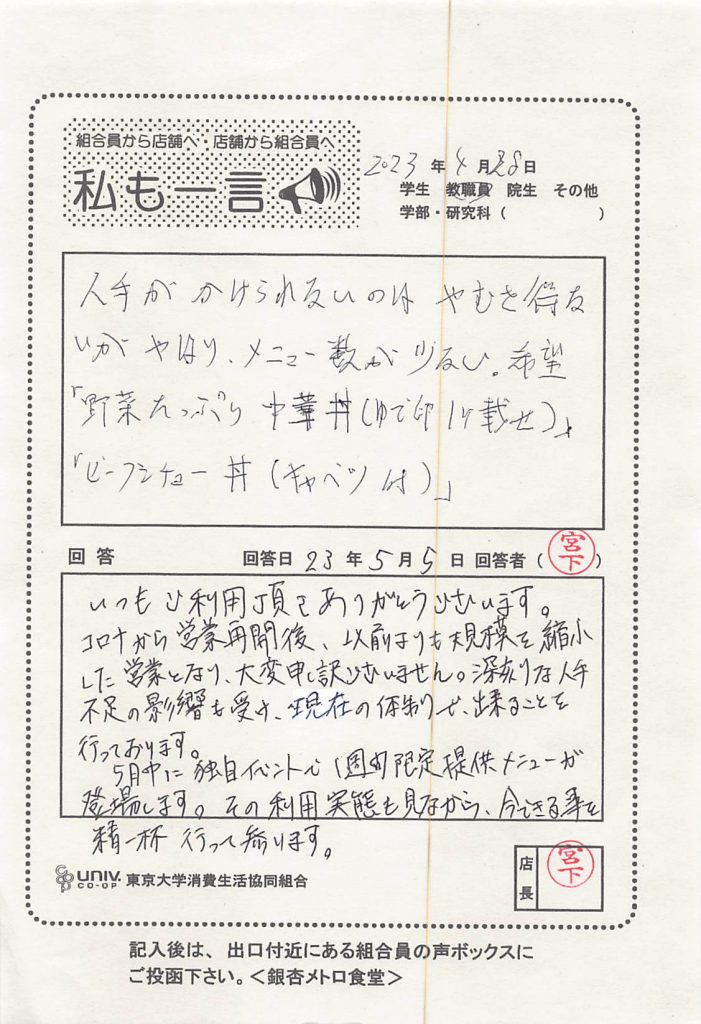 組合員から店舗へ・店舗から組合員へ
私も一言
2023年4月28日
学生 教職員 院生 その他
学部・研究科( )
人手がかけられないのは やむを得な
いが やはり、メニュー数が少ない。希望
「野菜たっぷり 中華丼(ゆで卵1ケ載せ)」
「ビーフシチュー丼(キャベツ付)」
回答 回答日 23年5月5日 回答者(宮下)
いつもご利用頂きありがとうございます。
コロナから営業再開後、以前よりも規模を縮小
した営業となり、大変申し訳ございません。深刻な人手
不足の影響も受け、現在の体制で、出来ることを
行っております。
5月中に独自イベントで1週間限定提供メニューが
登場します。その利用実態も見ながら、今できる事を
精一杯 行って参ります。
UNIV. CO-OP 東京大学消費生活協同組合
店長 宮下
記入後は、出口付近にある組合員の声ボックスに
ご投函下さい。<銀杏メトロ食堂>